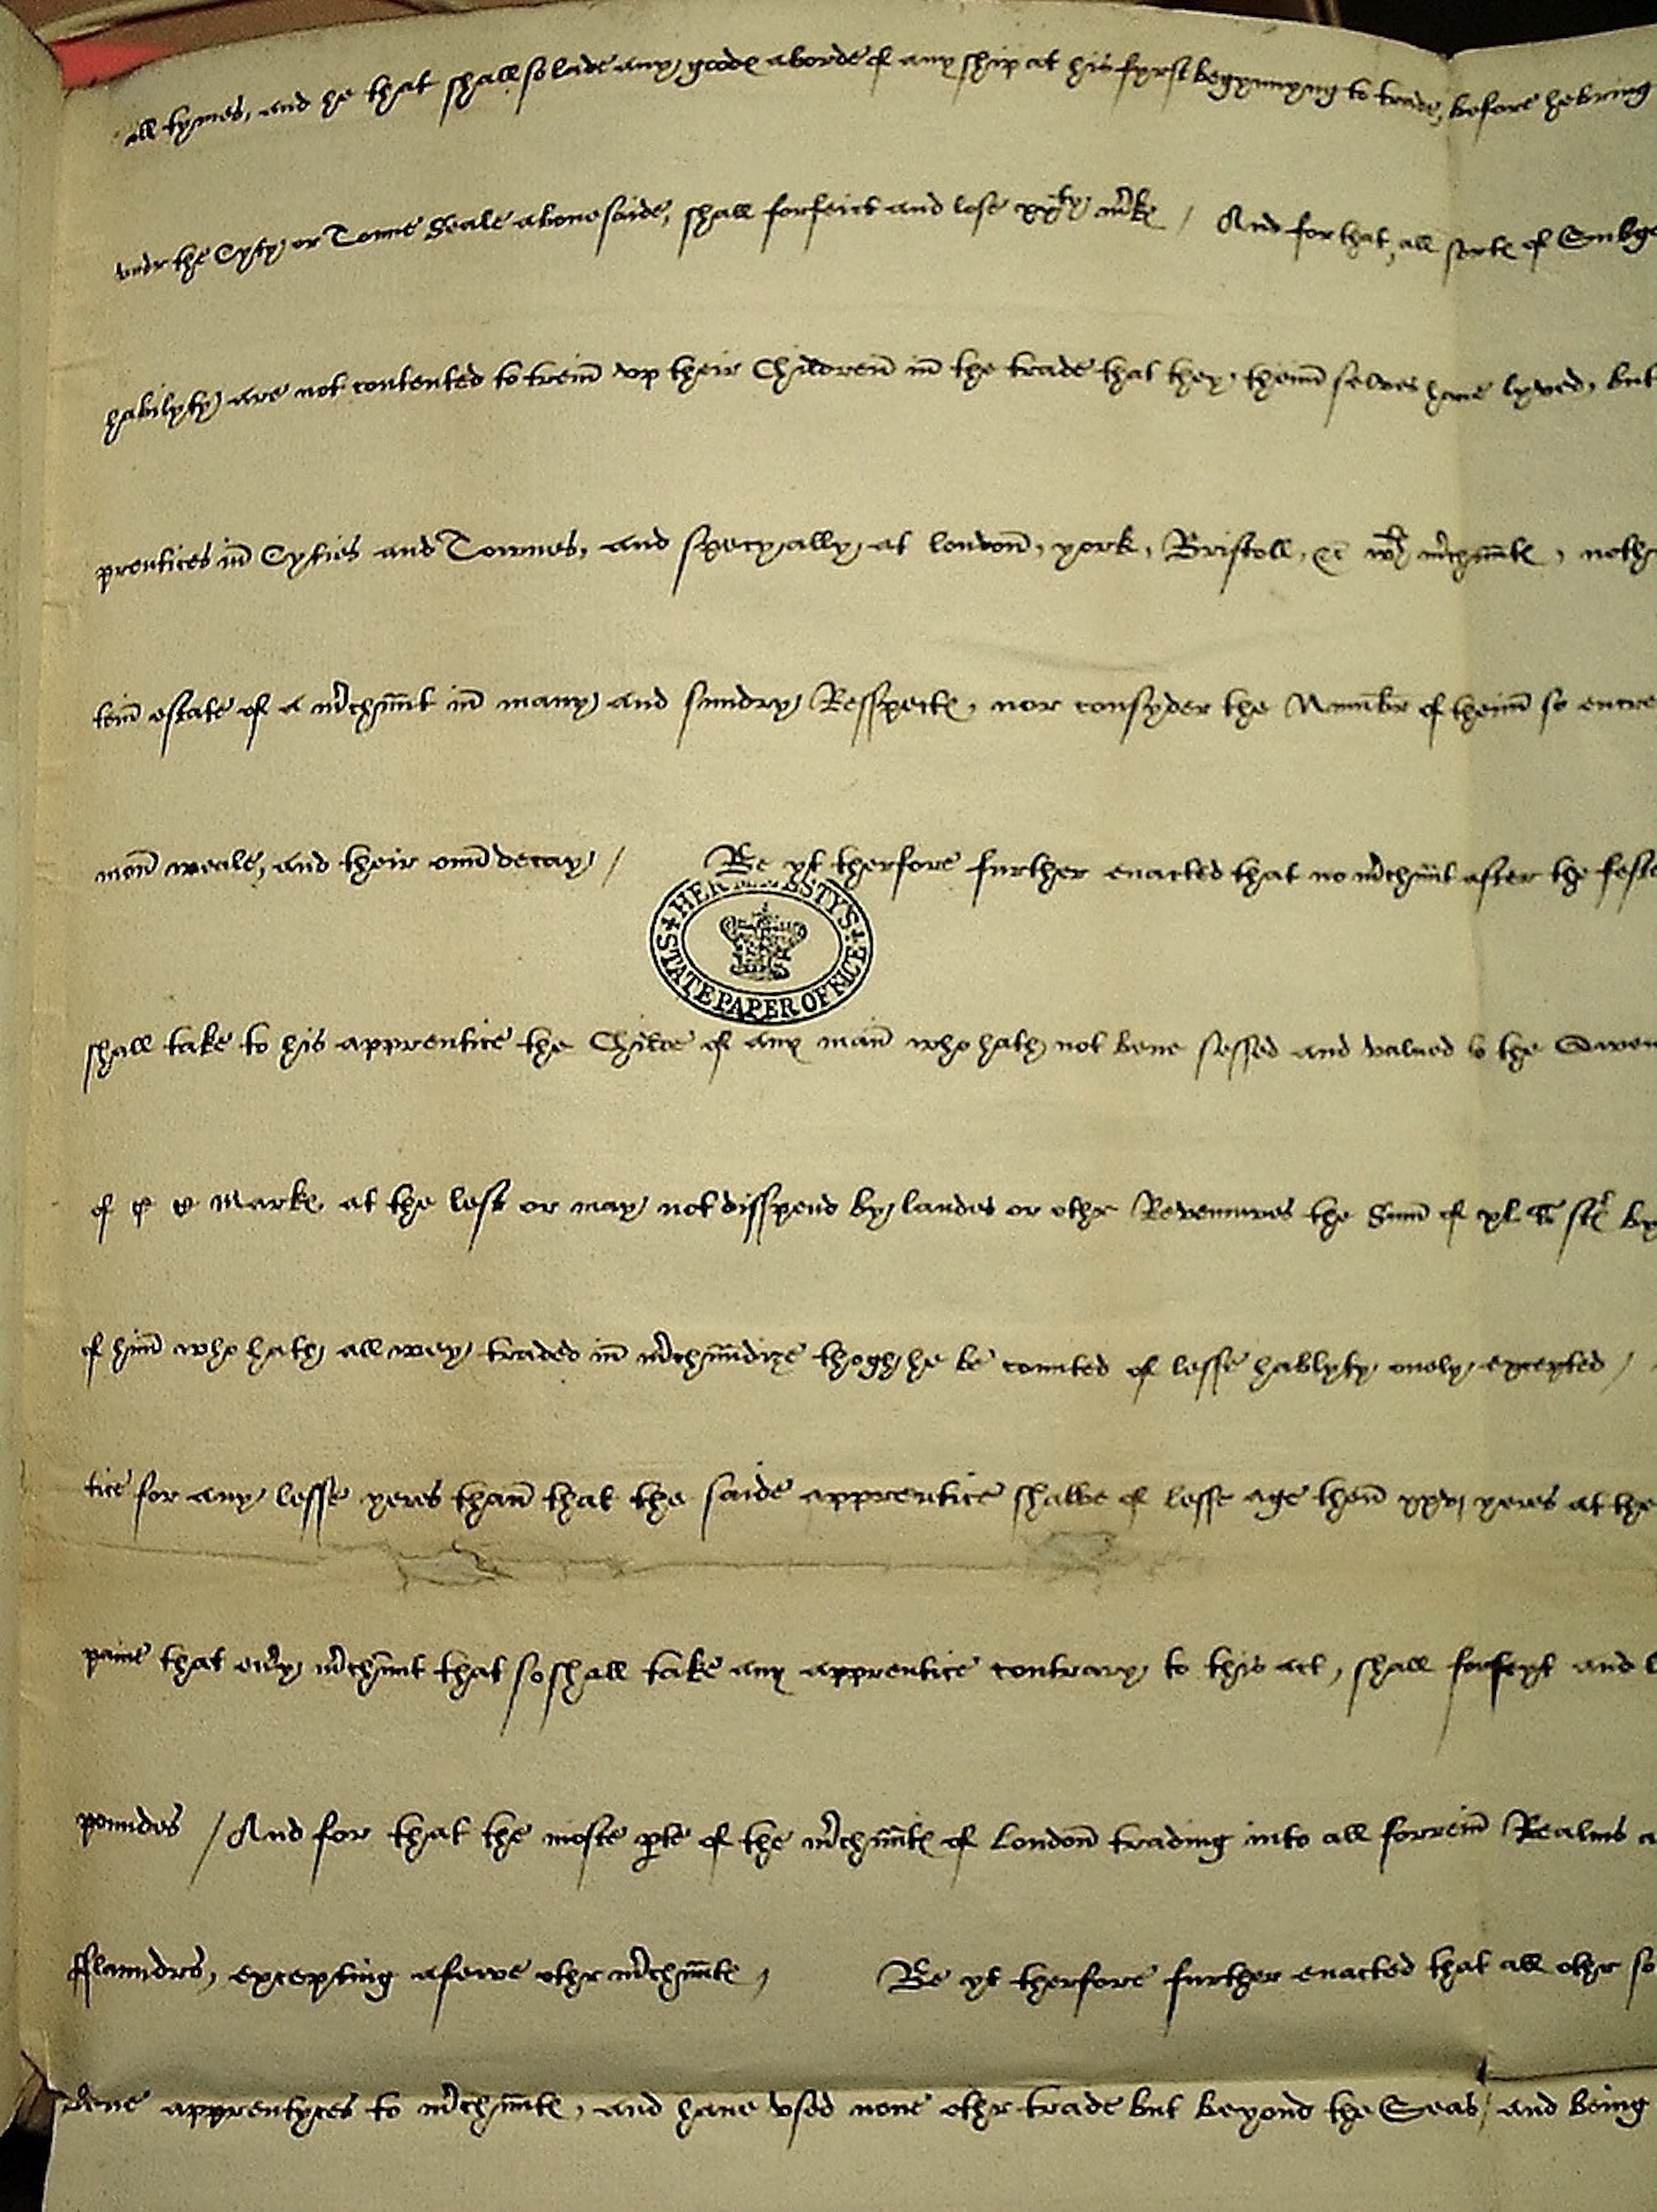 all tymes, and he that shall so lade any goodes aborde of any ship at his fyrst begynnyng to trade, before he bring
undr the Cyty or Towne Seale abovesaide, shall forfeict and lose xxty mrkes / And for that, all sortes of Subge
habilyty are not contented to trein up their Children in the trade that they theim selves have lyved, but
prentices in Cyties and Townes, and specyally at london, york, Bristoll, &c wt mrchants, noth
tein estate of a mrchant in many and sundry Respectes, nor consyder the Numbr of theim so encre
mon weale, and their own decay / Be yt therfore further enacted that no mrchant after the feste
HER MAJESTY'S STATE PAPER OFFICE
shall take to his apprentice the Childe of any man who hath not bene sessed and valued to the
of Markes at the lest or may not disspend by landes or othr Revenues the Sum of xl by
of him who hath allwey traded in mrchandize thogh he be counted of lesse hablyty onely excepted /
tice for any lesse yeres than that the saide apprentice shalbe of lesse age then xxvj yeres at the
paine that evry mrchant that so shall take any apprentice contrary to this act, shall forfeyt and l
poundes / And for that the moste pte of the mrchantes of London trading into all forrein Realms a
fflaundrs, excepting a fewe othr mrchantes, Be yt therfore further enacted that all othr so
bene apprentyces to mrchantes, and have used none othr trade but beyond the Seas, and being